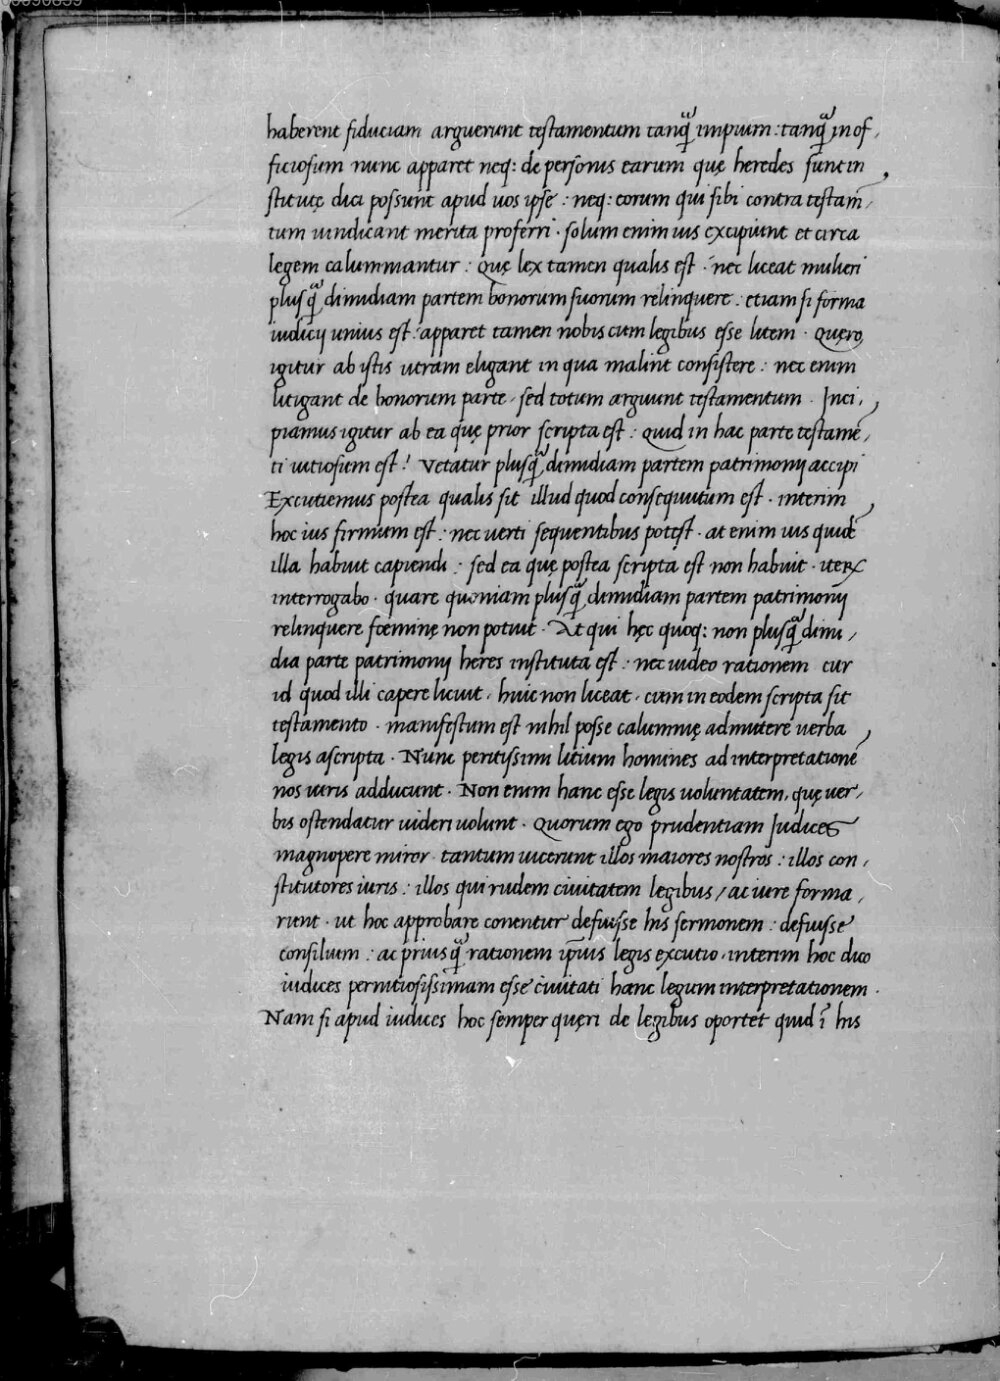 haberent fiduciam arguerunt testamentum tanq̃ impium : tanq̃ inof,
ficiosum nunc apparet neq: de personis earum quę heredes sunt in,
stitutę dici possunt apud uos ipse : neq: eorum qui sibi contra testam̄,
tum uindicant merita proferri · solum enim ius excipiunt et circa
legem calummantur : Quę lex tamen qualis est · nec liceat mulieri
plusq̃ dimidiam partem bonorum suorum relinquere : etiam si forma
iudicij unius est : apparet tamen nobis cum legibus esse litem · Quęro
igitur ab istis utram eligant in qua malint consistere : nec enim
litigant de bonorum parte, sed totum arguunt testamentum · Inci,
piamus igitur ab ea quę prior scripta est : Quid in hac parte testamē,
ti uitiosum est? Vetatur plusq̃ dimidiam partem patrimonij accipi
Excutiemus postea qualis sit illud quod consequutum est · interim,
hoc ius firmum est : nec uerti sequentibus potest · at enim ius quidē
illa habuit capiendi : sed ea quę postea scripta est non habuit · iteꝝ
interrogabo · quare quoniam plusq̃ dimidiam partem patrimonij
relinquere foeminę non potuit · At qui hęc quoq: non plusq̃ dimi,
dia parte patrimonij heres instituta est : nec uideo rationem cur
id quod illi capere licuit, huic non liceat · cum in eodem scripta sit
testamento · manifestum est nihil posse calumnię admittere uerba,
legis ascripta · Nunc peritissimi litium homines ad interpretationē
nos iuris adducunt · Non enim hanc esse legis uoluntatem, quę uer,
bis ostendatur uideri uolunt · Quorum ego prudentiam Judices
magnopere miror · tantum uicerunt illos maiores nostros : illos con,
stitutores iuris : illos qui rudem ciuitatem legibus / ac iure forma,
runt · ut hoc approbare conentur defuisse his sermonem : defuisse
consilium : ac priusq̃ rationem ip̄ius legis excutio, interim hoc dico
iudices pernitiosissimam esse ciuitati hanc legum interpretationem ·
Nam si apud iudices hoc semper quęri de legibus oportet quid ī his